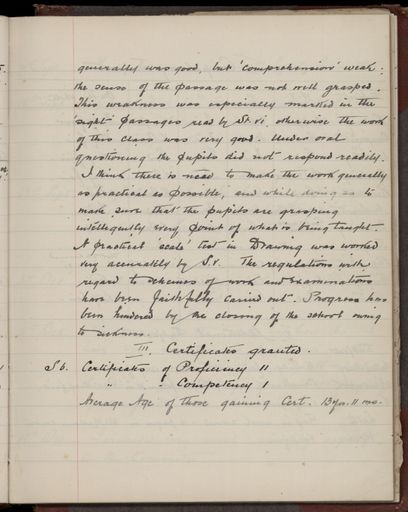 generally was good, but 'comprehension' weak:
the sense of the passage was not well grasped.
This weakness was especially marked in the
sight passages read by St. vi otherwise the work
of this class was very good. Under oral
questioning the pupils did not respond readily.
I think there is need to make the work generally
as practical as possible, and while doing so to
make sure that the pupils are grasping
intelligently every point of what is being taught.
A practical 'scale' test in Drawing was worked
very accurately by S.V. The regulations with
regard to schemes of work and examinations
have been faithfully carried out. Progress has
been hindered by the closing of the school owing
to sickness.
III. Certificates granted.
S6. Certificates of Proficiency 11
" " Competency 1
Average Age of those gaining Cert. 13 yrs. 11 mo.